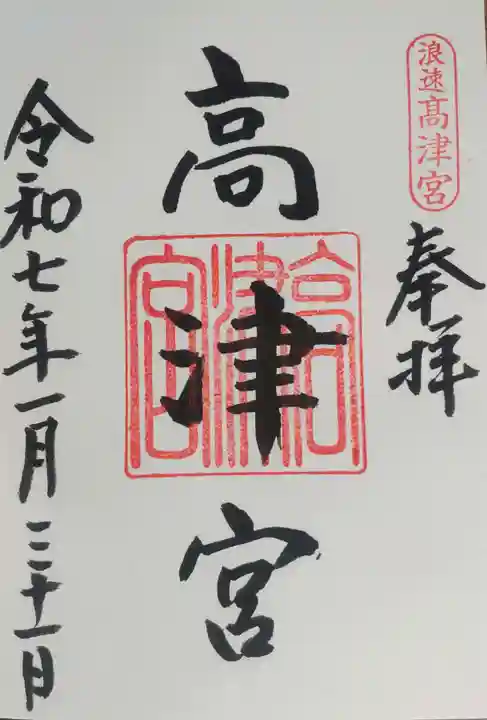 浪速髙津宮
奉拝
高津宮
高津宮
令和七年一月三十一日